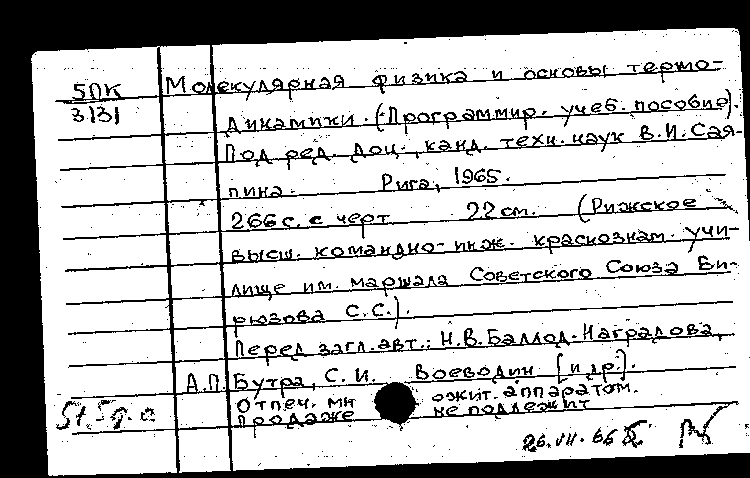 5ПК Молекулярная физика и основы термо-
3131 динамики. (Программир. учеб. пособие).
Под ред. доц., канд. техн. наук В.И. Сая-
пина. Рига, 1965.
266 с. с черт 22 см. (Рижское
высш. командно-инж. краснознам. учи-
лище им. маршала Советского Союза Би-
рюзова С.С.).
Перед загл. авт.: Н.В. Баллод-Наградова,
А.П. Бутра, С.И. Воеводин [и др.].
Отпеч. мн ожит. аппаратом.
продаже не подлежит
26.VII.66